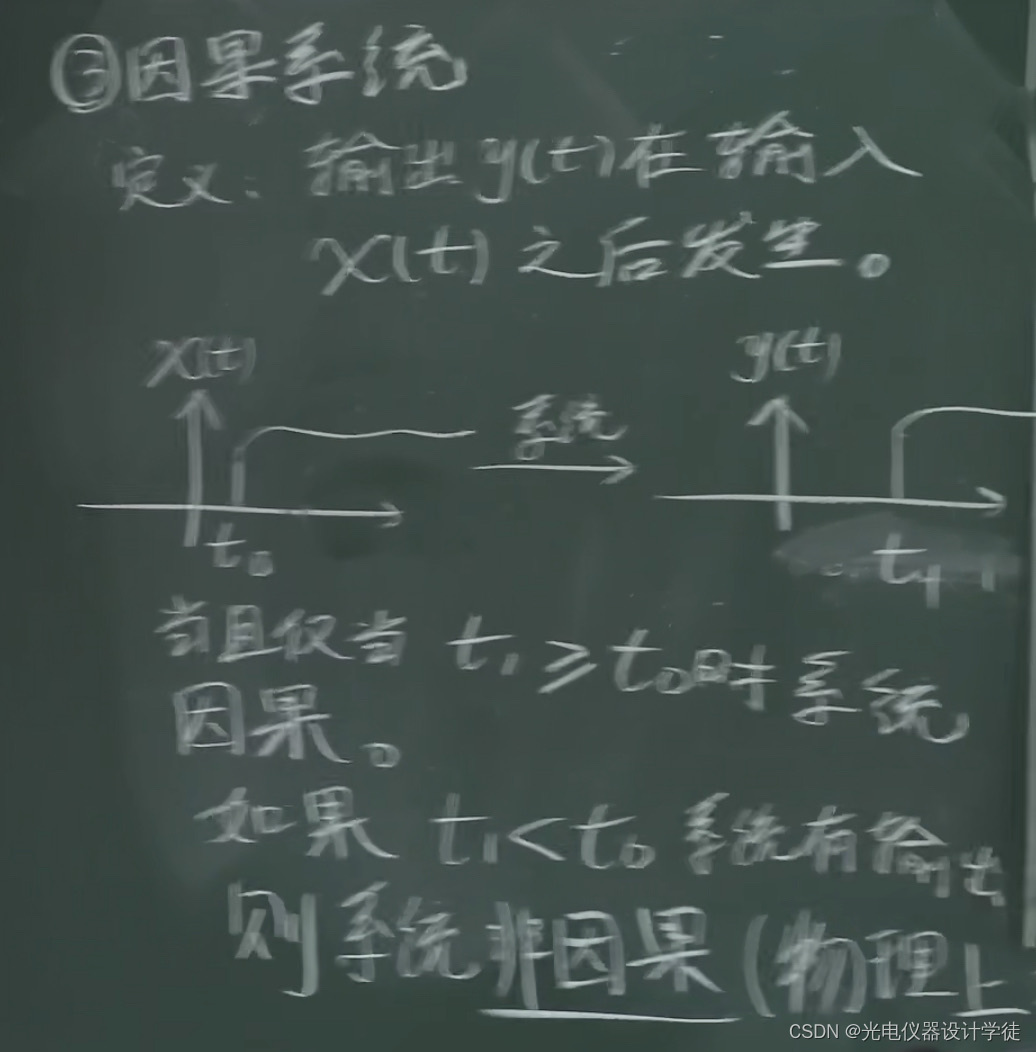 ③因果系统
定义：输出y(t)在输入
x(t)之后发生。
x(t)
y(t)
系统
t₀
t₁
当且仅当 t₁≥t₀时系统
因果。
如果 t₁<t₀ 系统有输出
则系统非因果(物理上
CSDN @光电仪器设计学徒